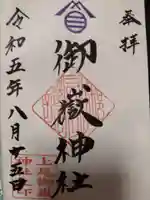 奉拝
御嶽神社
令和五年八月十五日